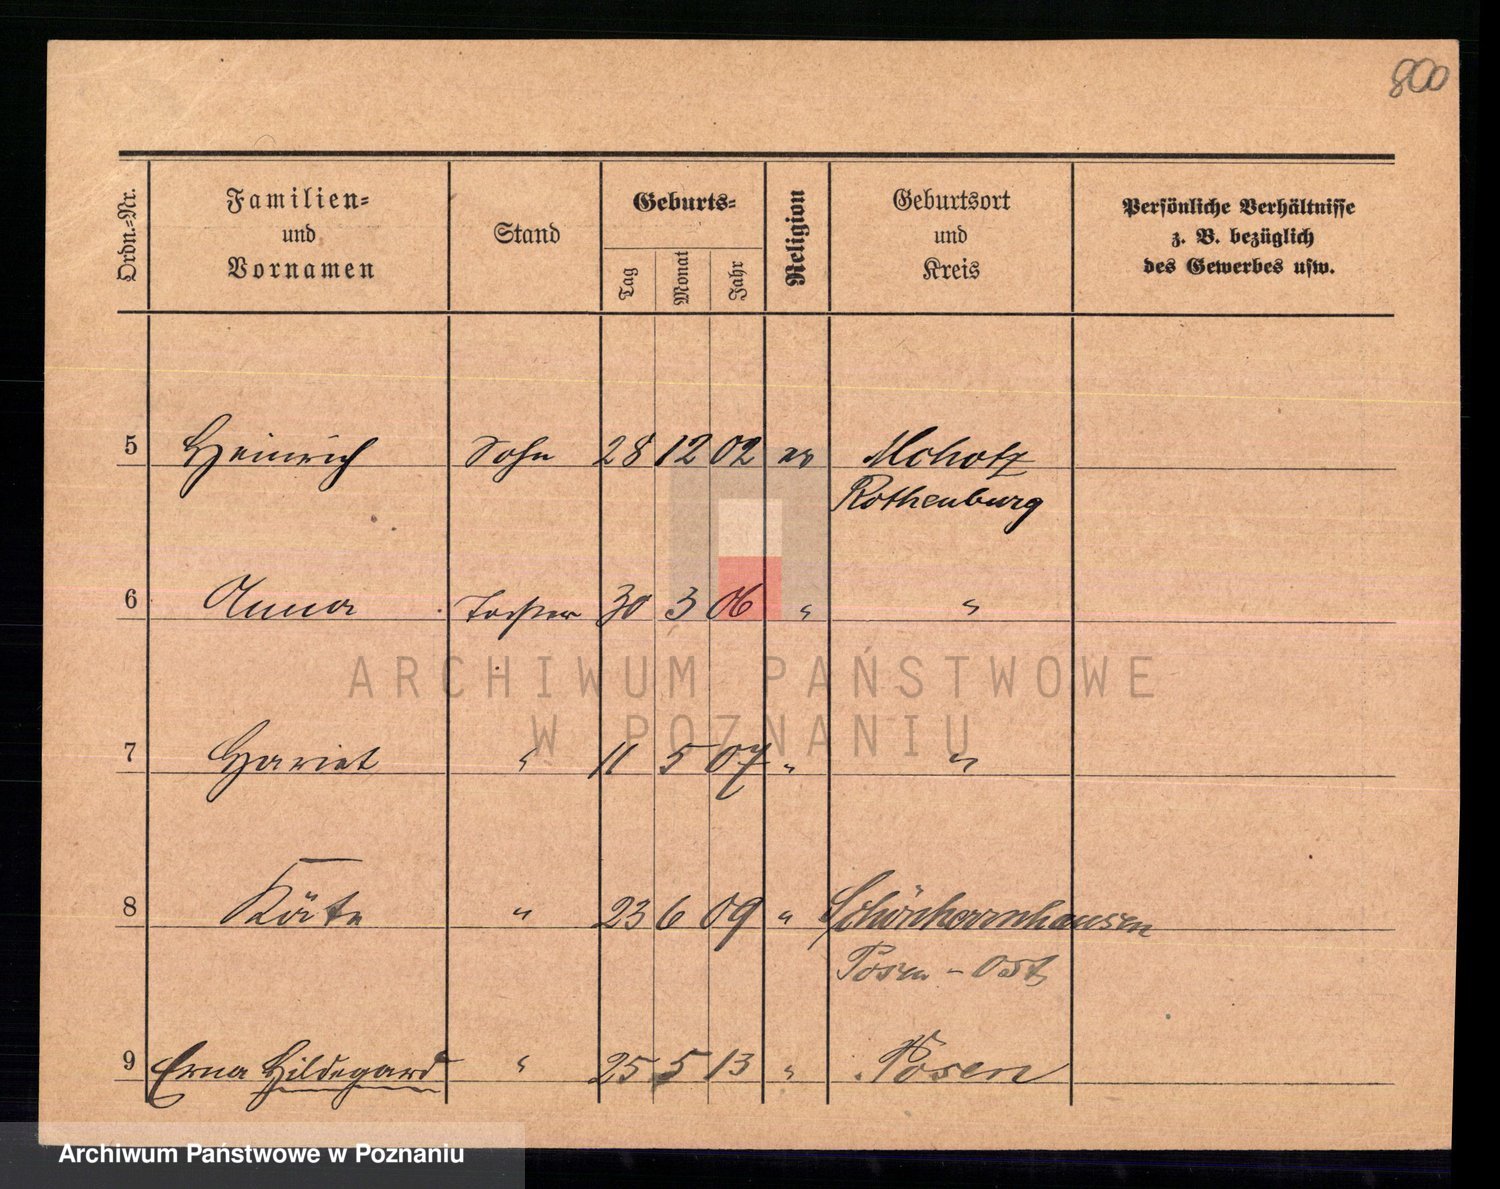 800
Ordn.-Nr.
Familien-
und
Vornamen
Stand
Geburts-
Tag
Monat
Jahr
Religion
Geburtsort
und
Kreis
Persönliche Verhältnisse
z. B. bezüglich
des Gewerbes usw.
5 Heinrich Sohn 28 12 02 ev Mcholz
Rothenburg
6 Anna Tochter 30 3 06 " "
ARCHIWUM PAŃSTWOWE
W POZNANIU
7 Hariet " 11 5 07 " "
8 Käte " 23 6 09 " Schönherrnhausen
Posen - Ost
9 Erna Hildegard " 25 5 13 " Posen
Archiwum Państwowe w Poznaniu